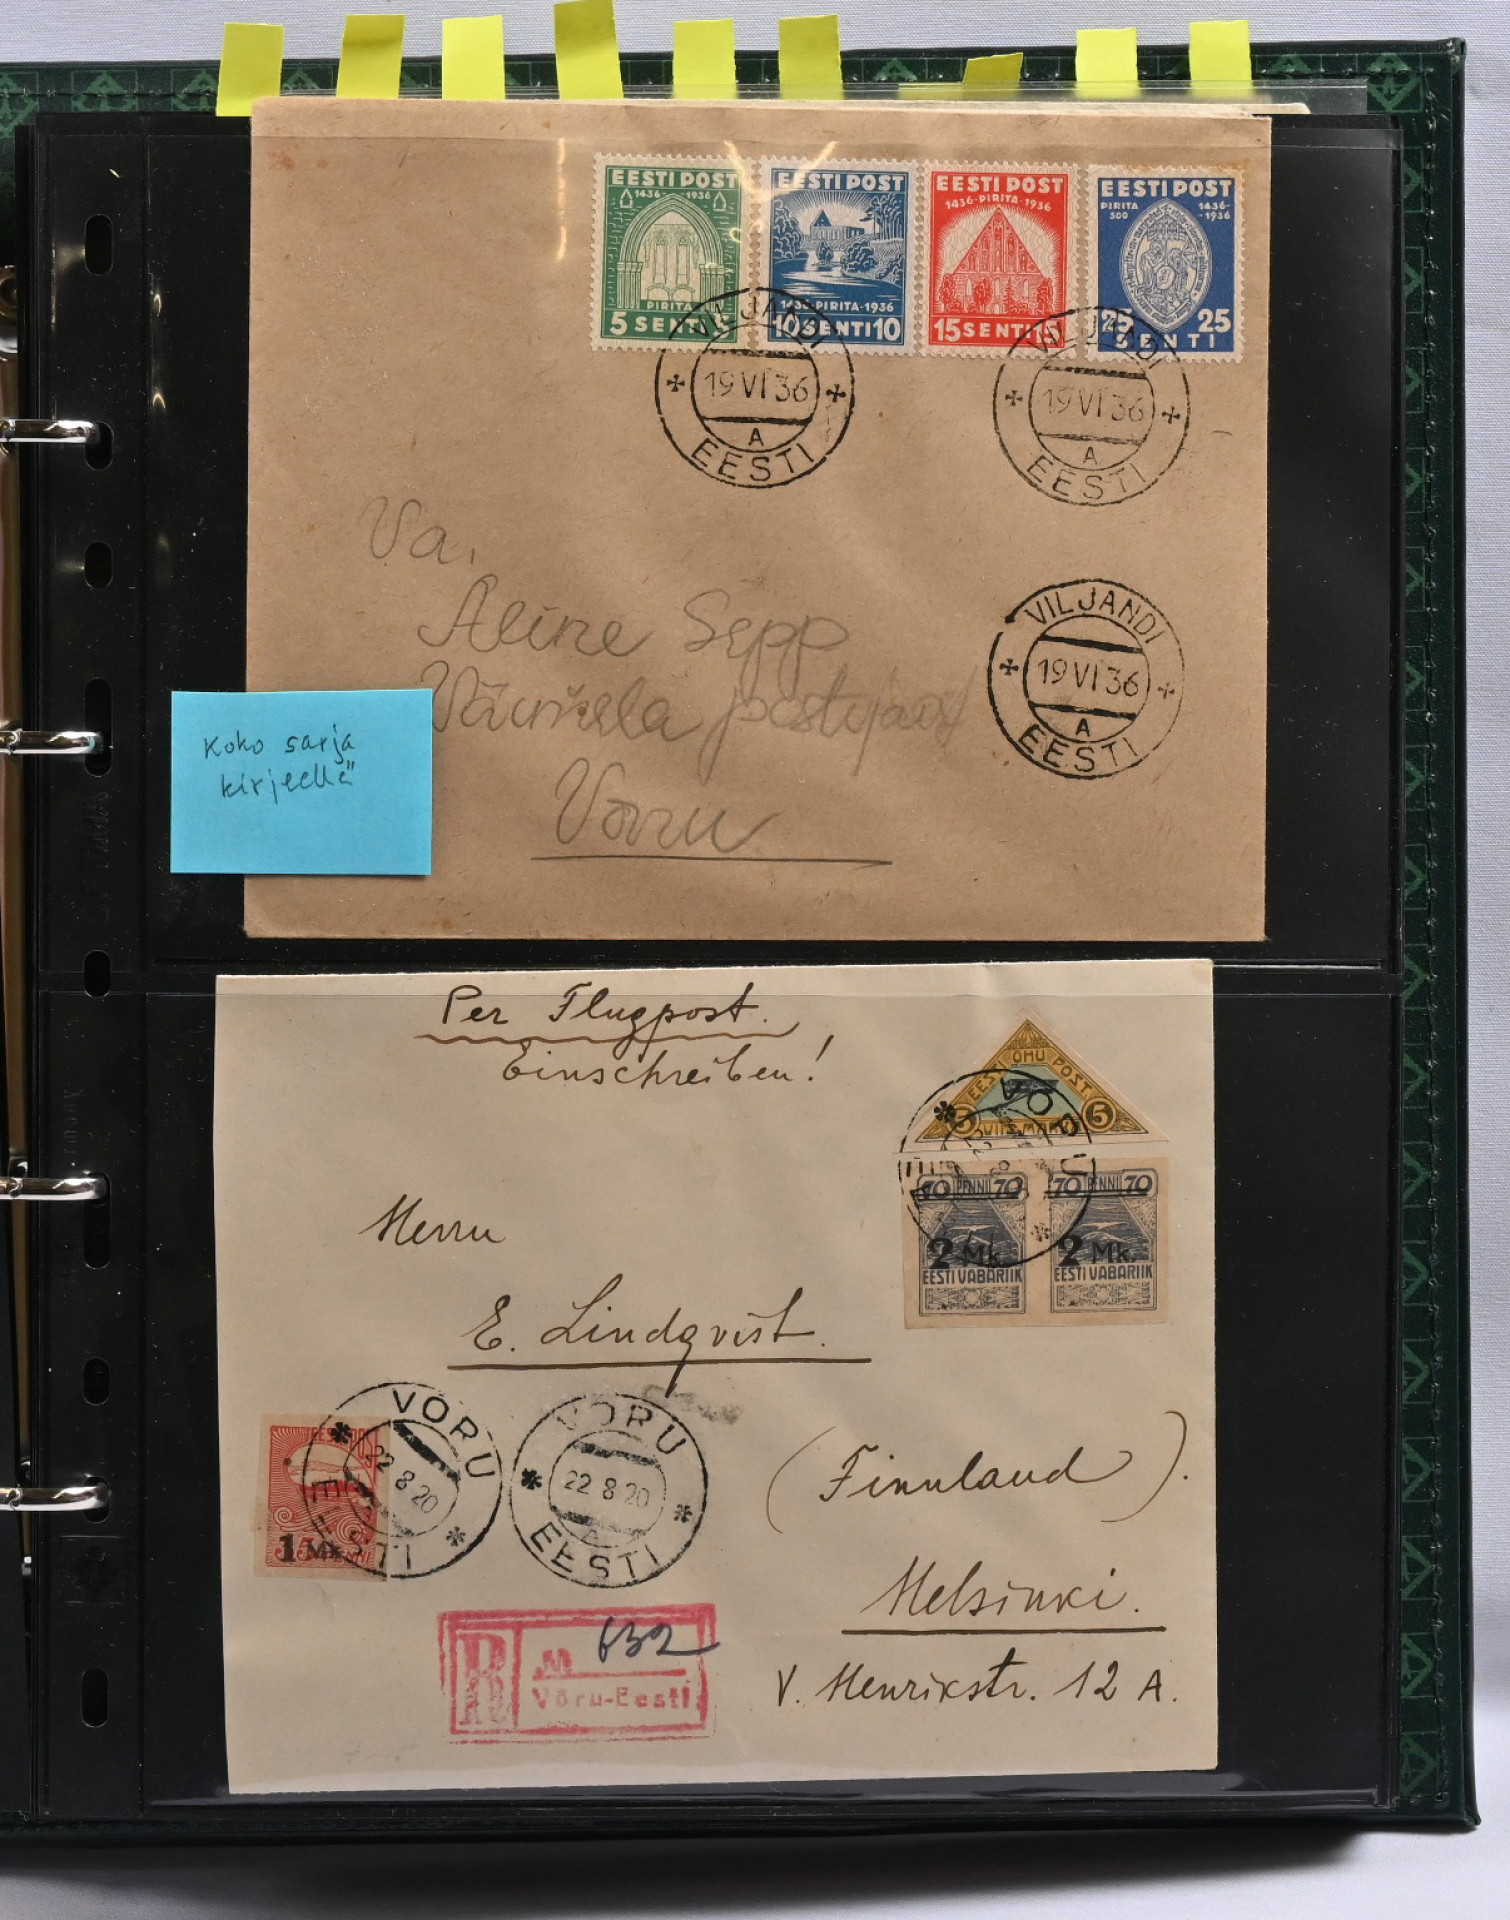 EESTI POST
1436 - 1936
PIRITA
5 SENTI 5
EESTI POST
1436-PIRITA-1936
10 SENTI 10
EESTI POST
1436-PIRITA-1936
15 SENTI 15
EESTI POST
PIRITA 500
1436-1936
25 25
SENTI
VILJANDI
19 VI 36
A
EESTI
VILJANDI
19 VI 36
A
EESTI
Va.
Aline Sepp
VILJANDI
19 VI 36
A
EESTI
Võru
Koko sarja
kirjeellä
Per Flugpost.
Einschreiben!
EESTI ÕHU POST.
5 VIIS MARKA 5
VÕRU
70 PENNI 70
2 Mk.
EESTI VABARIIK
70 PENNI 70
2 Mk.
EESTI VABARIIK
Herrn
E. Lindqvist.
1 Mk.
VÕRU
22 8 20
EESTI
VÕRU
22 8 20
A
EESTI
(Finnland).
Helsinki.
R
№ 632
Võru-Eesti
V. Henrikstr. 12 A.